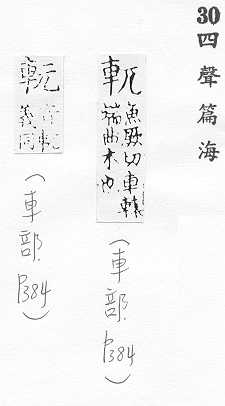 30 四聲篇海
軏 魚厥切車轅
端曲木也
(車部 P384)
義同
(車部 P384)